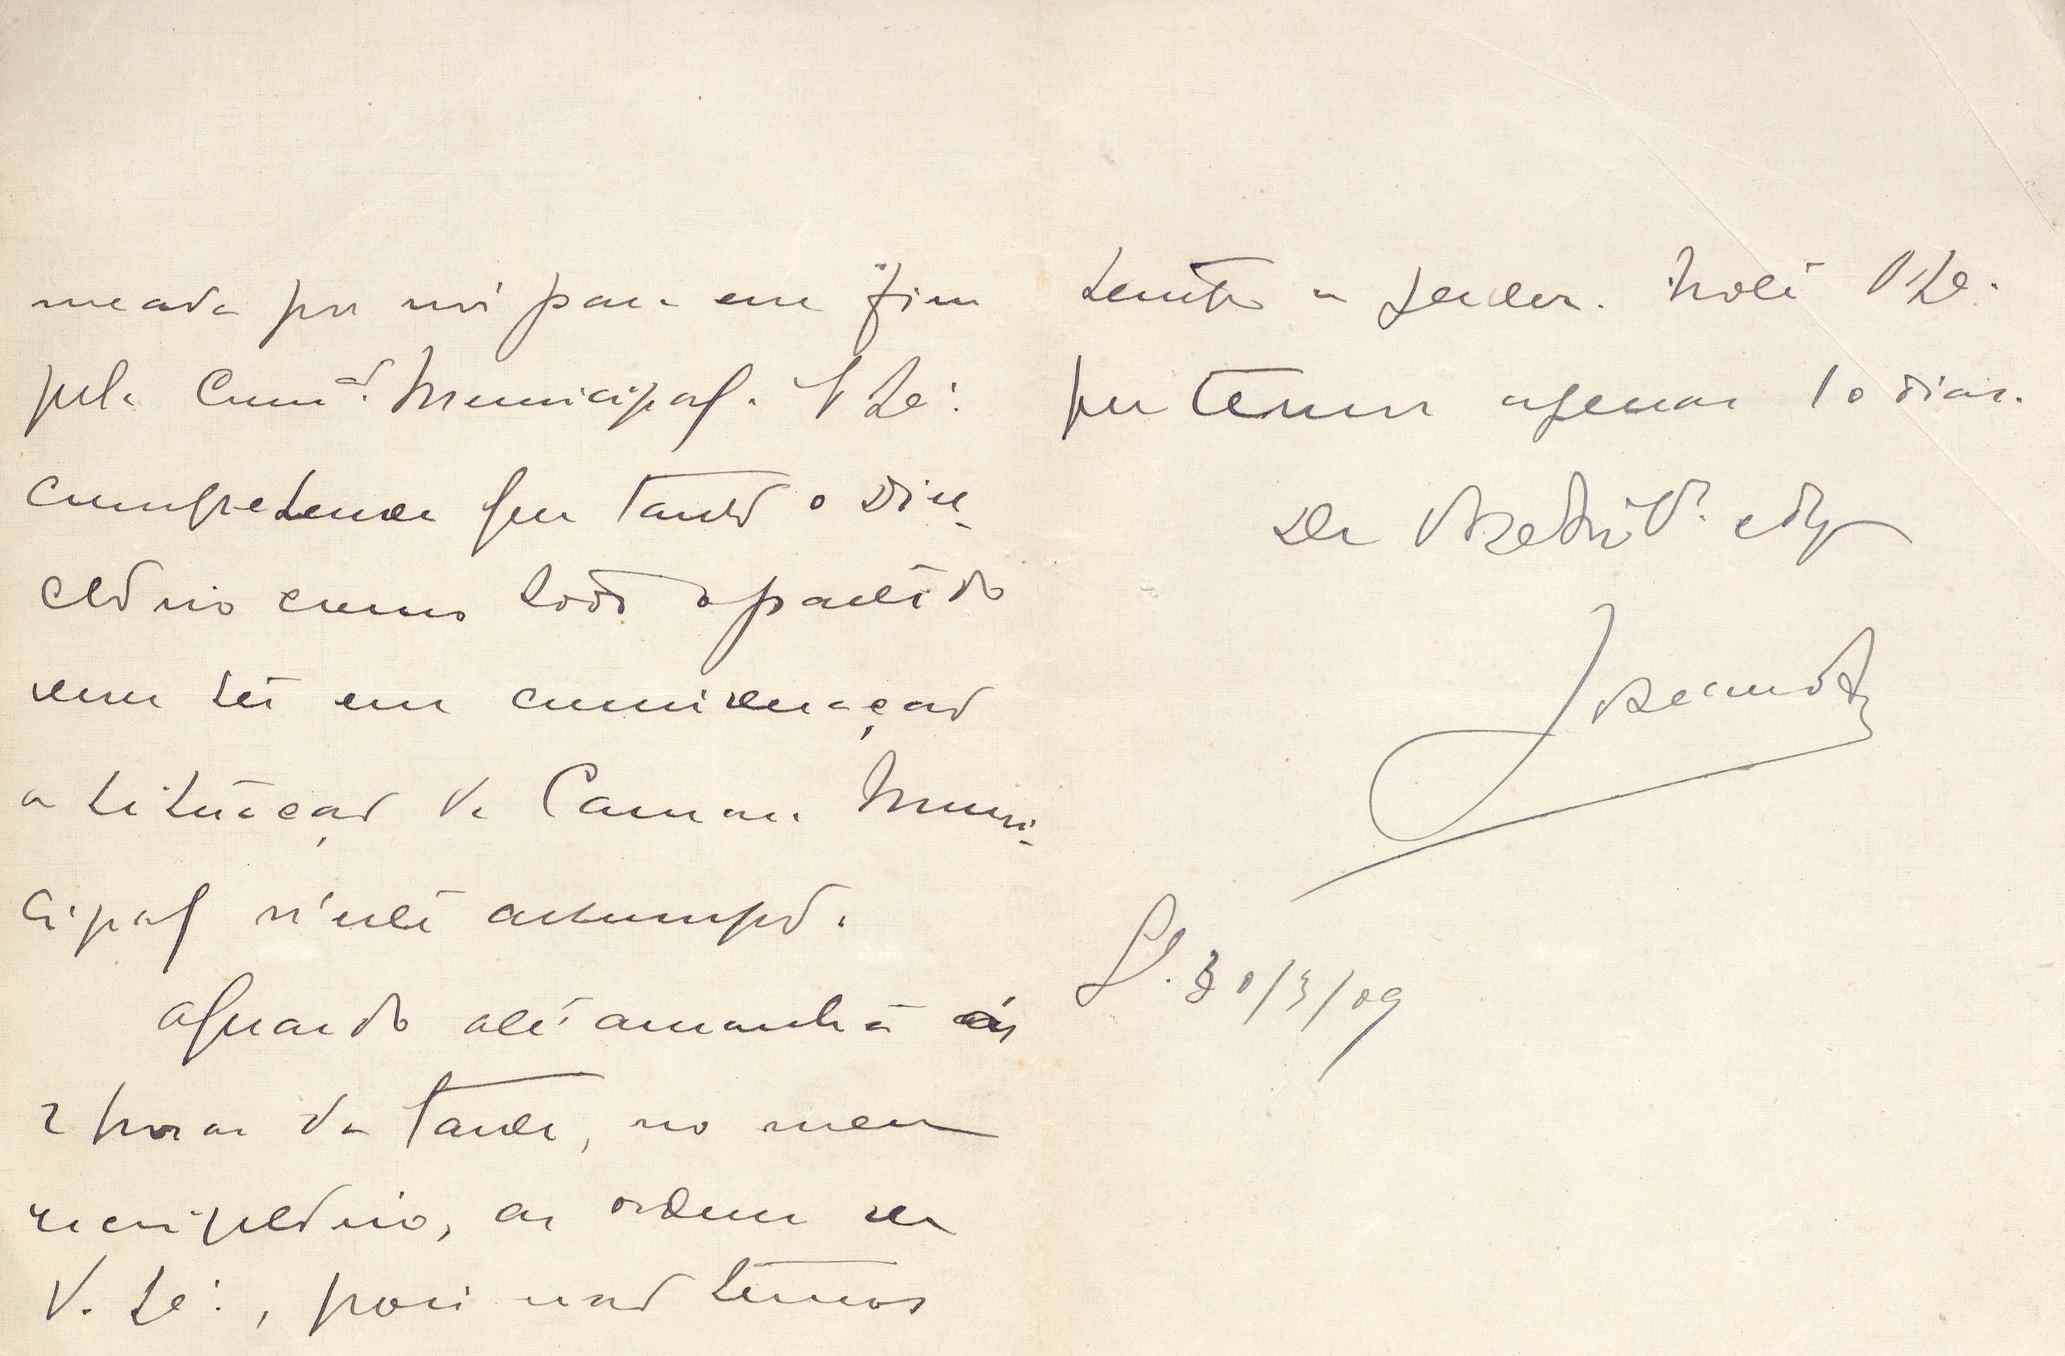 meada por nós para esse fim
pela Com.ão Municipal. V. Ex.ª
comprehende que tanto o Dire-
ctorio como todo o partido
tem em consideração
a situação da Camara Muni-
cipal n'este assumpto.
Aguardo até amanhã ás
2 horas da tarde, no meu
escriptorio, as ordens de
V. Ex.ª, pois não temos
tempo a perder. Note V. Ex.ª
que temos apenas 10 dias.
De V. Ex.ª
L. 30/3/09